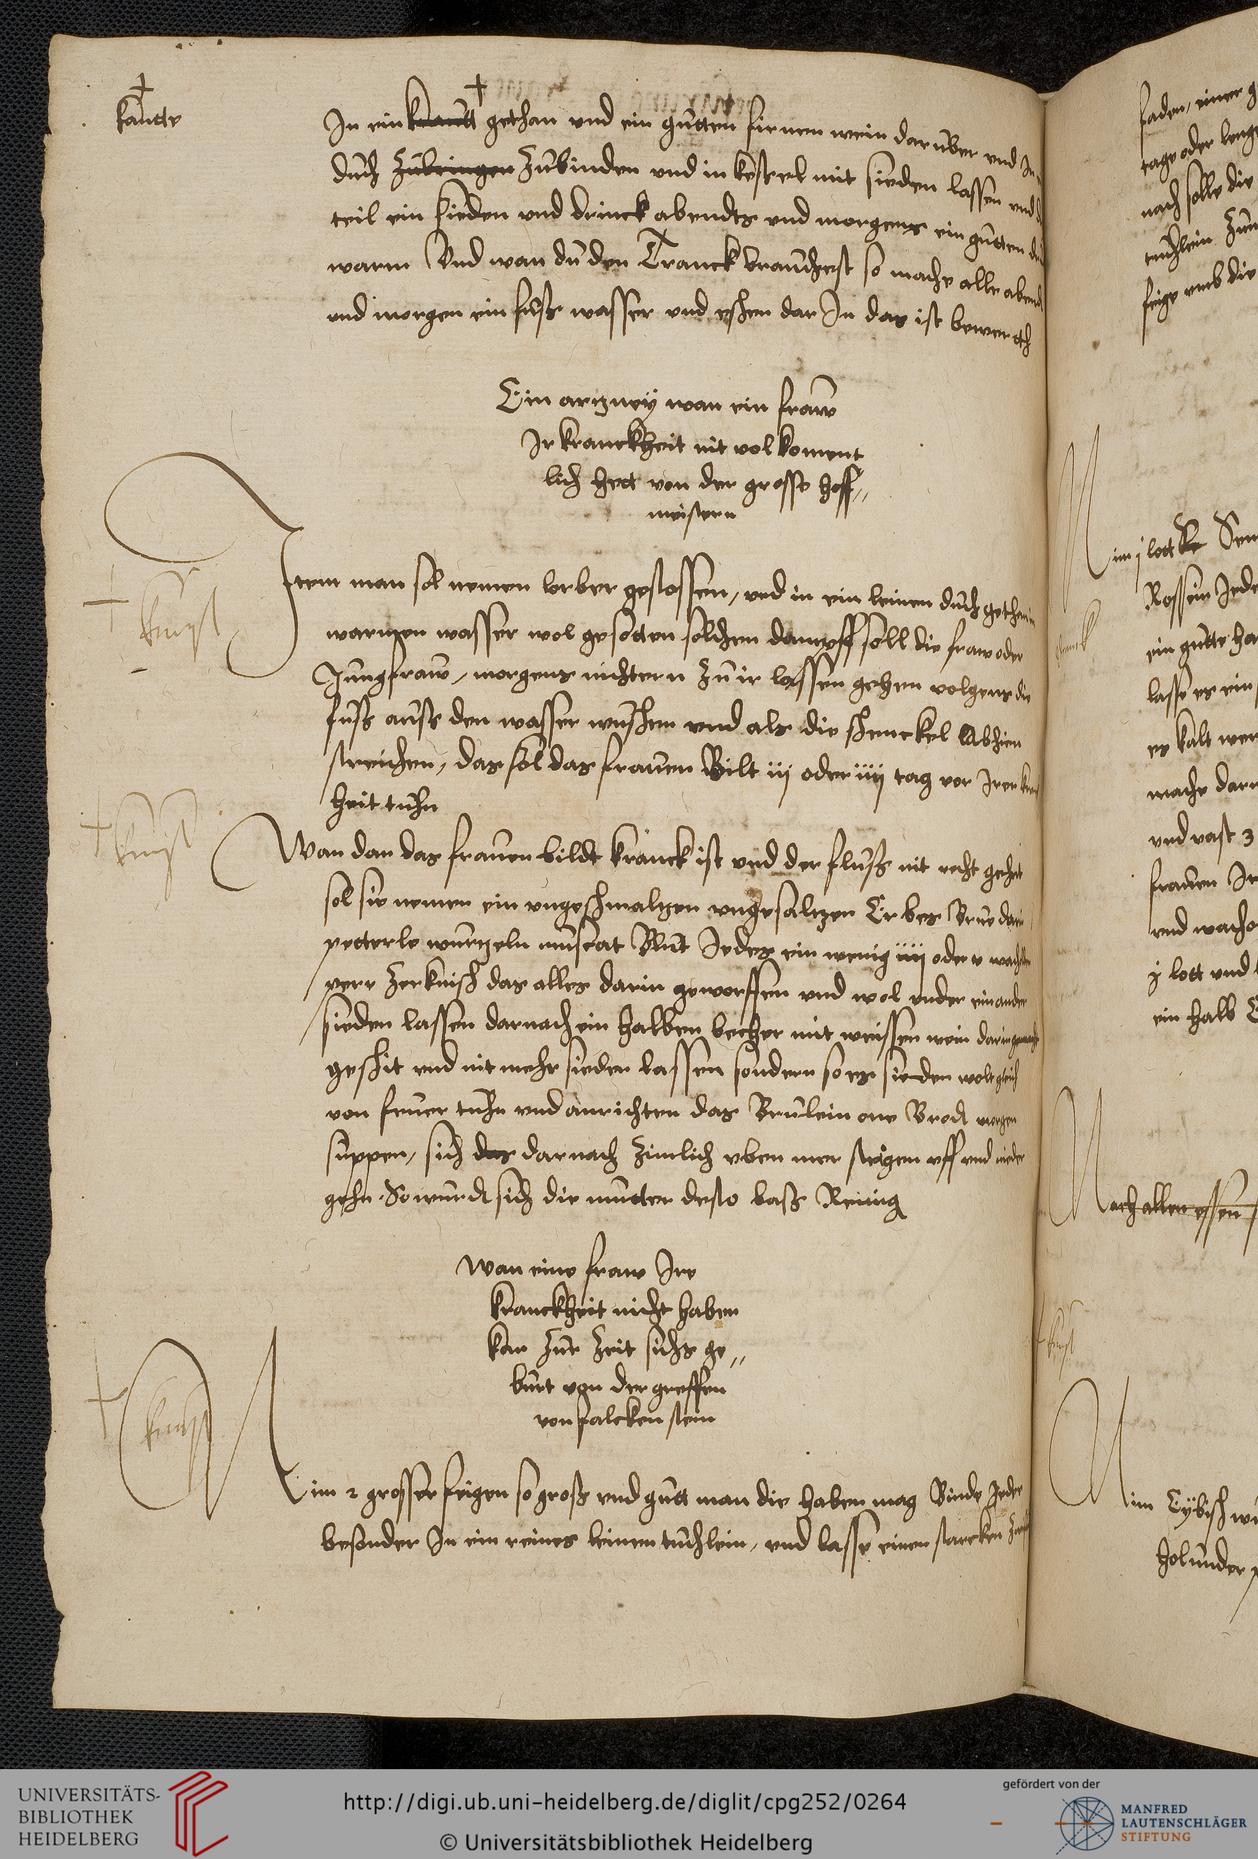 kantte
In ein krautt gethan vnd ein gutten firnen wein daruber vnd In
duch zubringen zubinden vnd in kessel mit sieden lassen vnd
teil ein sieden vnd drinck abendts vnd morgens ein gutten
warm Vnd wan du den Tranck brauchest so mache alle abend
vnd morgen ein fuß wasser vnd eschen dar In das ist bewerth
Ein artzney wan ein fraw
Ir kranckheit nit volkoment
lich hett von der grosse hoff„
meistern
Item man sol nemen lorber gestossen, vnd in ein leinen duch gethan
warmen wasser wol gesotten solchen dampff soll die fraw oder
Jungfraw, morgens nichtern zu ir lassen gehen volgens die
fuß auß den wasser wuschen vnd als die schenckel Abhien
streichen, das sol das frauen Bilt iij oder iiij tag vor Irer
heit tuhn
kunst
kunst
Wan dan das frauen bildt kranck ist vnd der fluß nit recht gehet
sol sie nemen ein vngeschmaltzen vngesaltzen Erbes Brue
petterle wurtzeln muscat Blut Jedes ein wenig iiij oder v
perr zerknisch das alles darin geworffen vnd wol vnder einander
sieden lassen darnach ein halben becher mit weissen wein
geschit vnd nit mehr sieden lassen sondern so es sieden wolt gleich
von feuer tuhn vnd anrichten das Brulein one Brodt morgen
suppen, sich das darnach zimlich vben mer stegen vff vnd nieder
gehn. So wurdt sich die mutter desto baß Reinig
Wan eine fraw Ire
kranckheit nicht haben
kan zur zeit sichs ge„
burt von der greffen
von falckenstein
kunst
Nim 2 grosser feigen so groß vnd gutt man die haben mag Binde Jeder
besonder In ein reines leinen tuchlein, vnd lasse einen starcken
faden, einer
tage oder leng
nach solle die
tuchlein
feige vmb die
Nim j lott
Rossein Jede
ein gutte
lasse es ein
es kalt wer
mache dar
vnd vast 3
frauen Ir
vnd
j lott vnd
ein halb
Nach allen essen
Nim Eybisch
holunder
UNIVERSITÄTS-
BIBLIOTHEK
HEIDELBERG
http://digi.ub.uni-heidelberg.de/diglit/cpg252/0264
© Universitätsbibliothek Heidelberg
gefördert von der
MANFRED
LAUTENSCHLÄGER
STIFTUNG